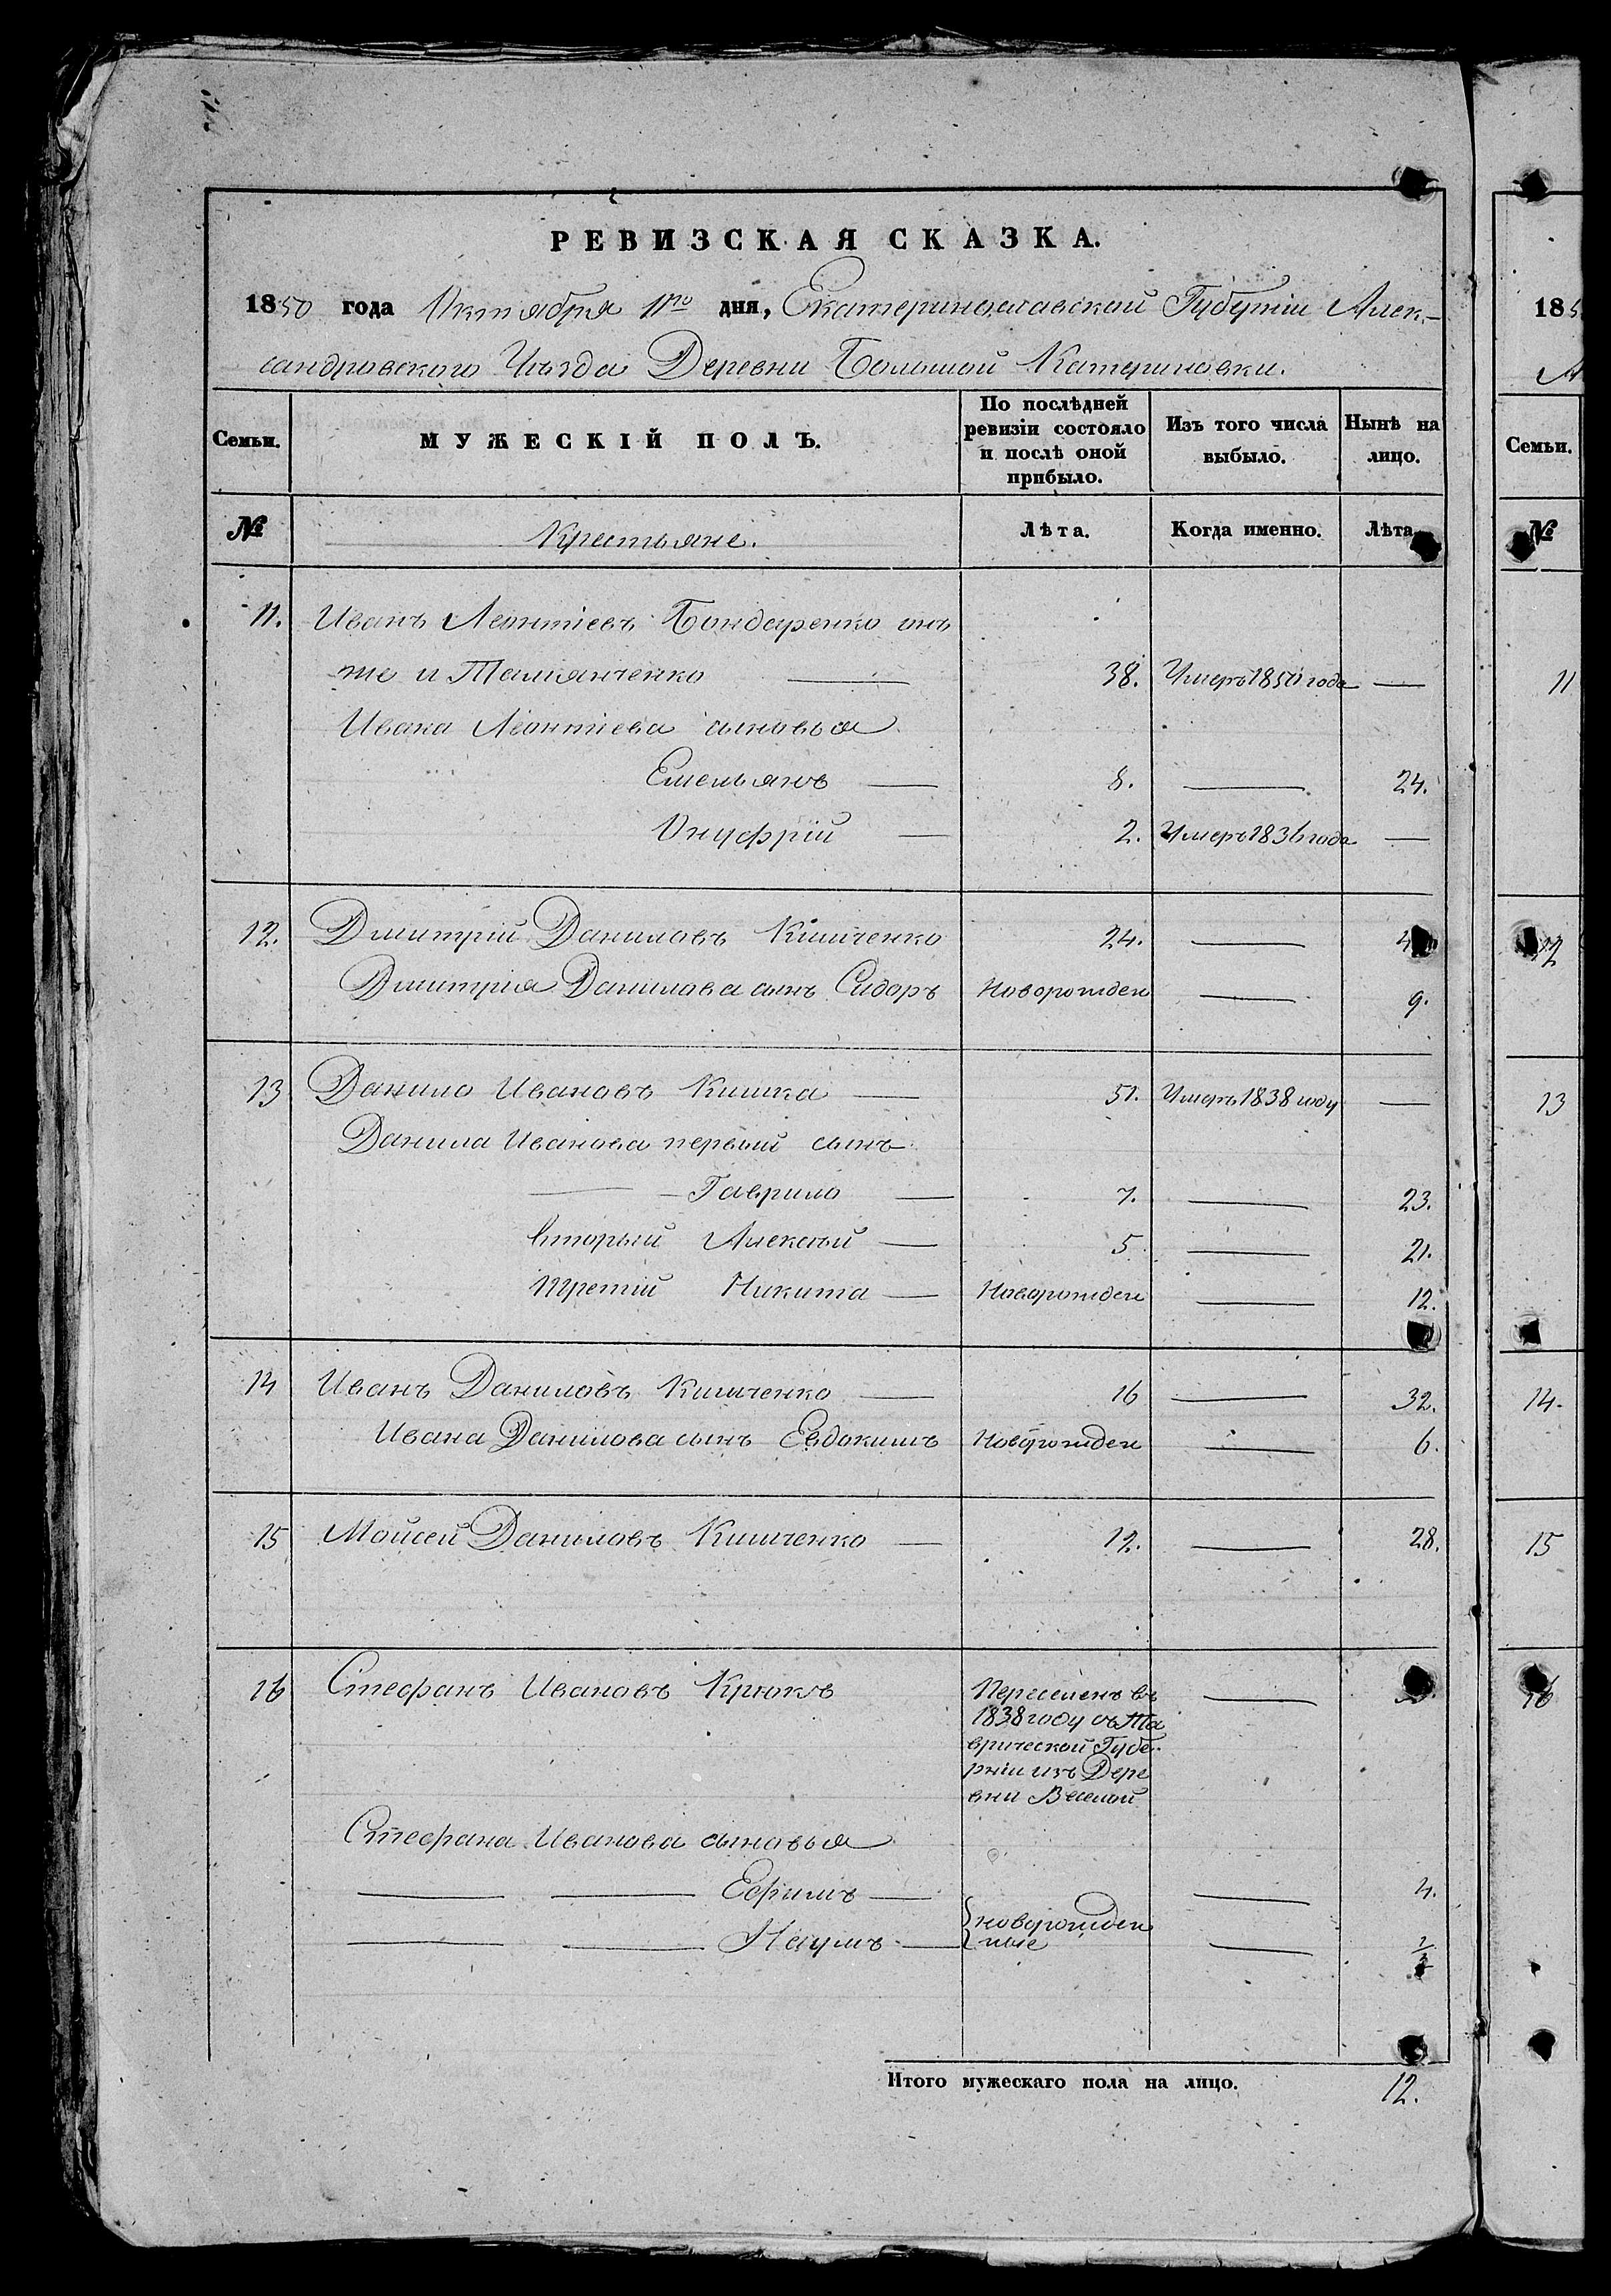 РЕВИЗСКАЯ СКАЗКА.
1850 года Октября 11го дня, Екатеринославской Губерніи Алек-
сандровского Уѣзда Деревни Большой Катериновки.
Семьи. МУЖЕСКІЙ ПОЛЪ. По послѣдней ревизіи состояло и послѣ оной прибыло. Изъ того числа выбыло. Нынѣ на лицо.
№ Крестьяне. Лѣта. Когда именно. Лѣта
11. Иванъ Леонтіевъ Бондаренко онъ
же и 38. Умеръ 1850 года —
Ивана Леонтіева сыновья
Емельянъ — 8. — 24.
Онуфрій — 2. Умеръ 1836 года —
12. Дмитрій Даниловъ Кишченко 24. —
Дмитрія Данилова сынъ Сидоръ Новорожден — 9.
13 Данило Ивановъ Кишка — 51. Умеръ 1838 году —
Данила Иванова первый сынъ
— Гаврило — 7. — 23.
вторый Алексѣй — 5. — 21.
третій Никита — Новорожден — 12.
14 Иванъ Даниловъ Кишченко — 16 — 32.
Ивана Данилова сынъ Евдокимъ Новорожден — 6.
15 Мойсей Даниловъ Кишченко — 12. — 28.
16 Стефанъ Ивановъ Крюкъ Переселенъ въ —
1838 году съ Та
врической Губе-
рніи изъ Дере
вни
Стефана Иванова сыновья
— — Ефимъ — — 4.
— — Наумъ — новорожден
ные — 1/2
Итого мужескаго пола на лицо. 12.
185
А
Семьи.
№
11
12
13
14.
15
16